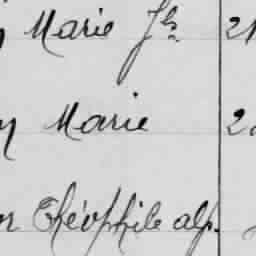 Marie Jh 21
Marie 2
Théophile alp.